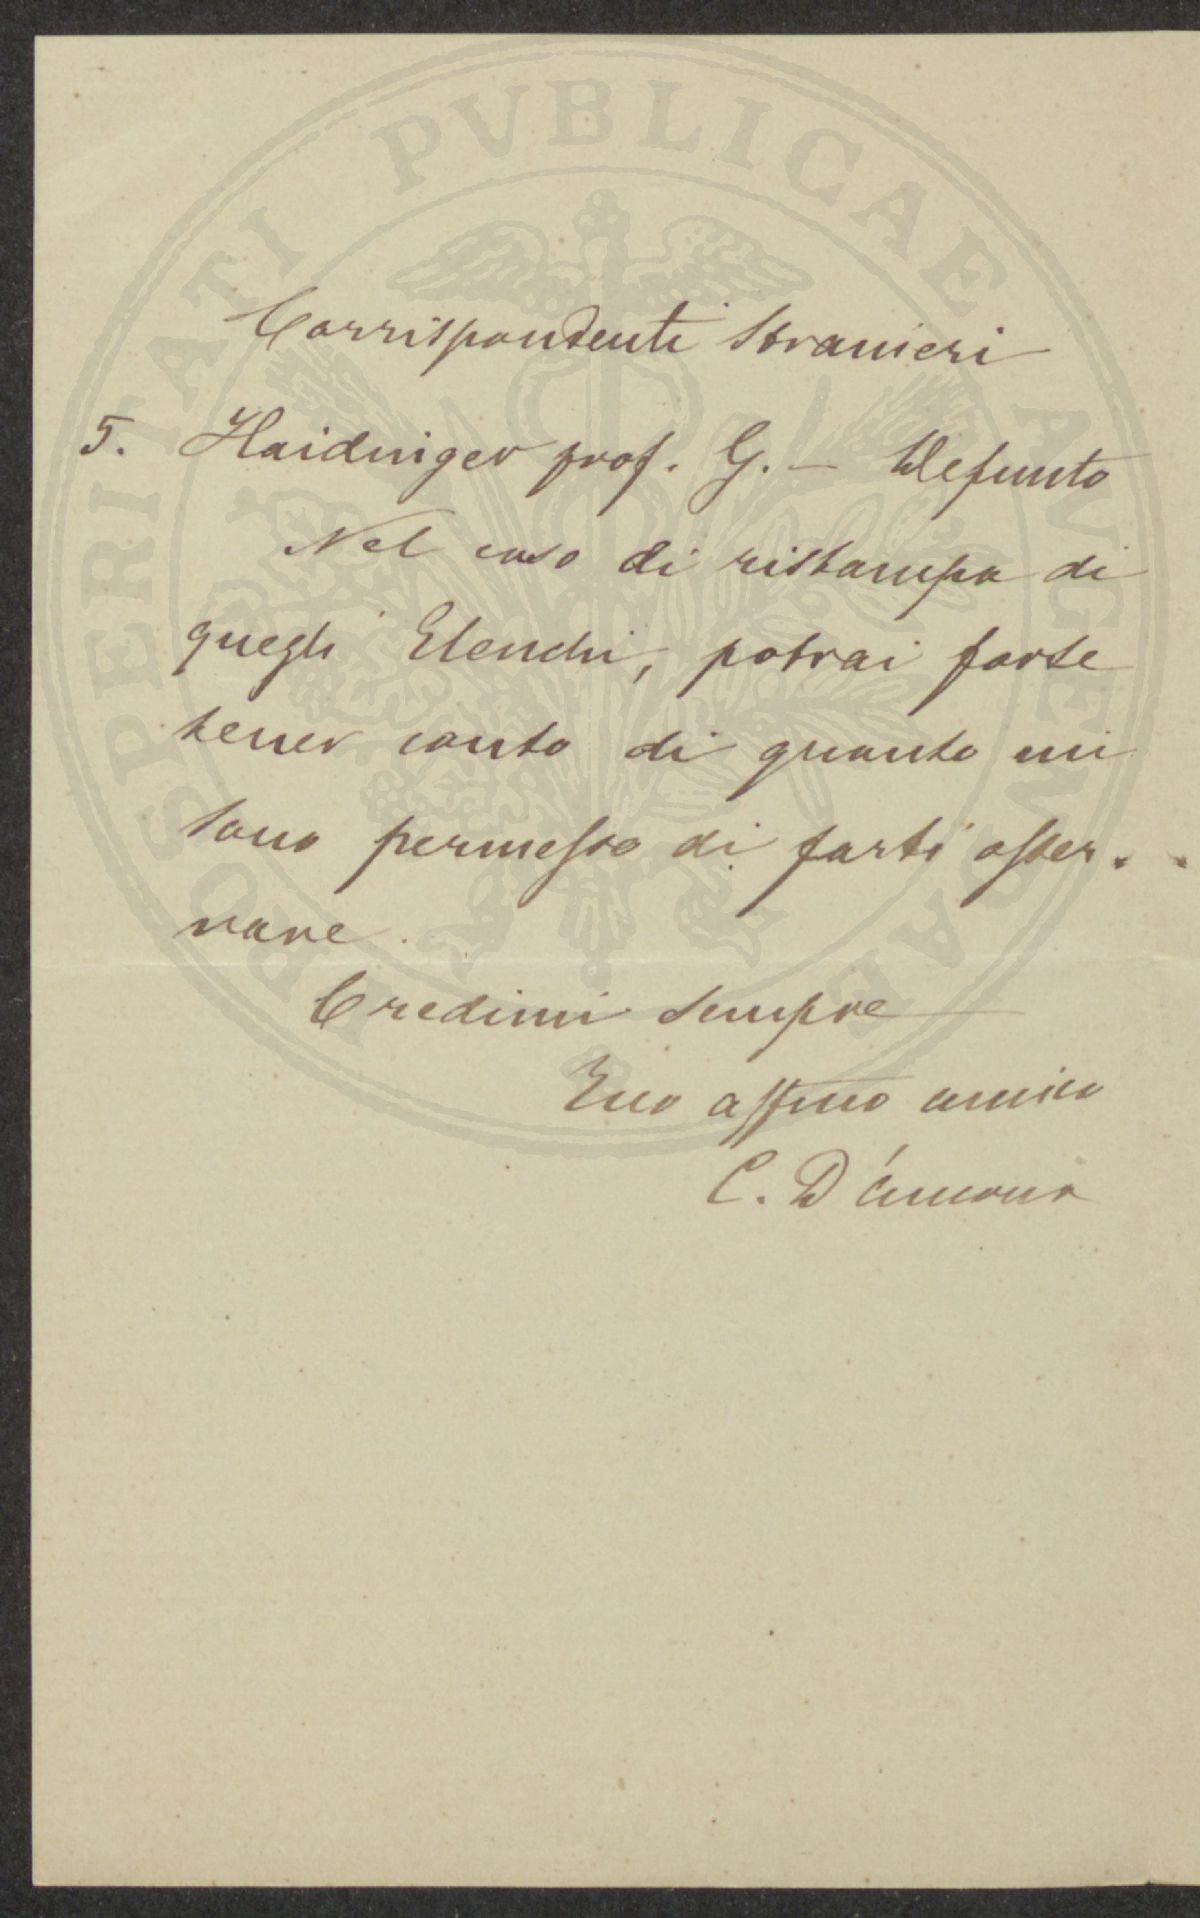 Corrispondenti Stranieri
5. Haidinger prof. G. — Defunto
Nel caso di ristampa di
quegli Elenchi, potrai forse
tener conto di quanto mi
sono permesso di farti osser-
vare.
Credimi sempre
Tuo affmo amico
C. D'Ancona
PROSPERITATI PVBLICAE AVGENDAE